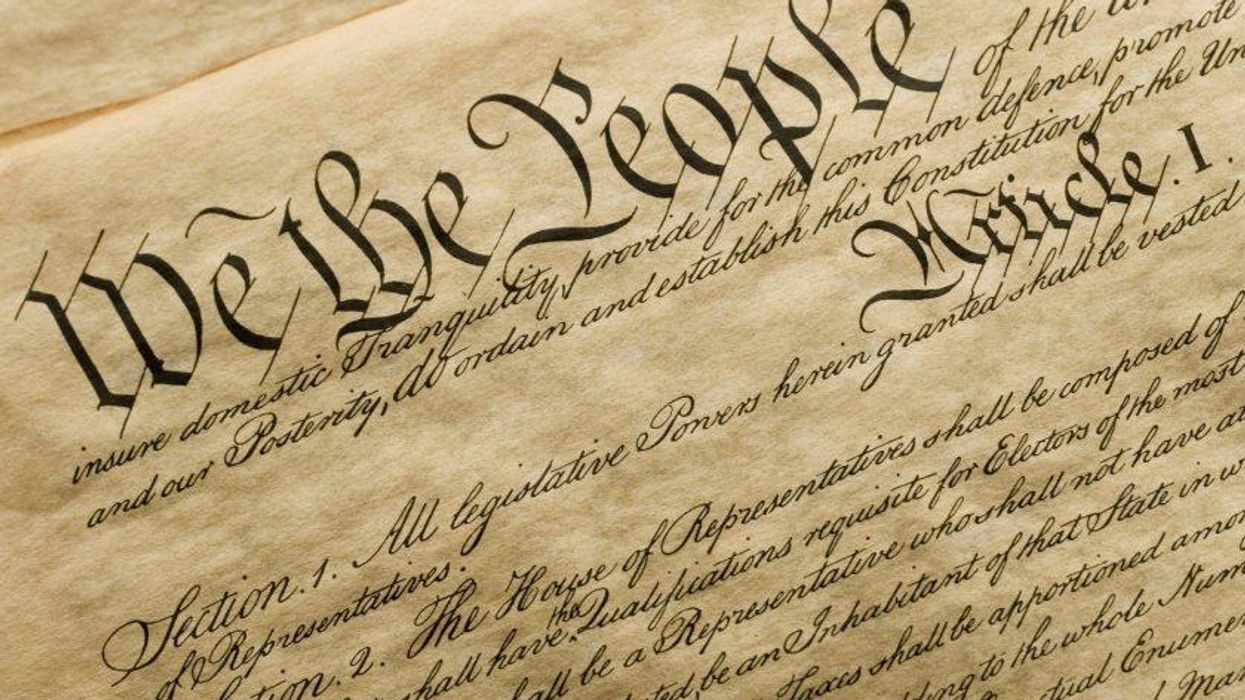 We the People of the
insure domestic Tranquility, provide for the common defence, promote
and our Posterity, do ordain and establish this Constitution for the Un
Article. I.
Section. 1. All legislative Powers herein granted shall be vested
of Representatives.
tion. 2. The House of Representatives shall be composed of
shall have the Qualifications requisite for Electors of the most
all be a Representative who shall not have at
ted, be an Inhabitant of that State in w
Taxes shall be apportioned amon
ding to the whole Num
tual Enumer